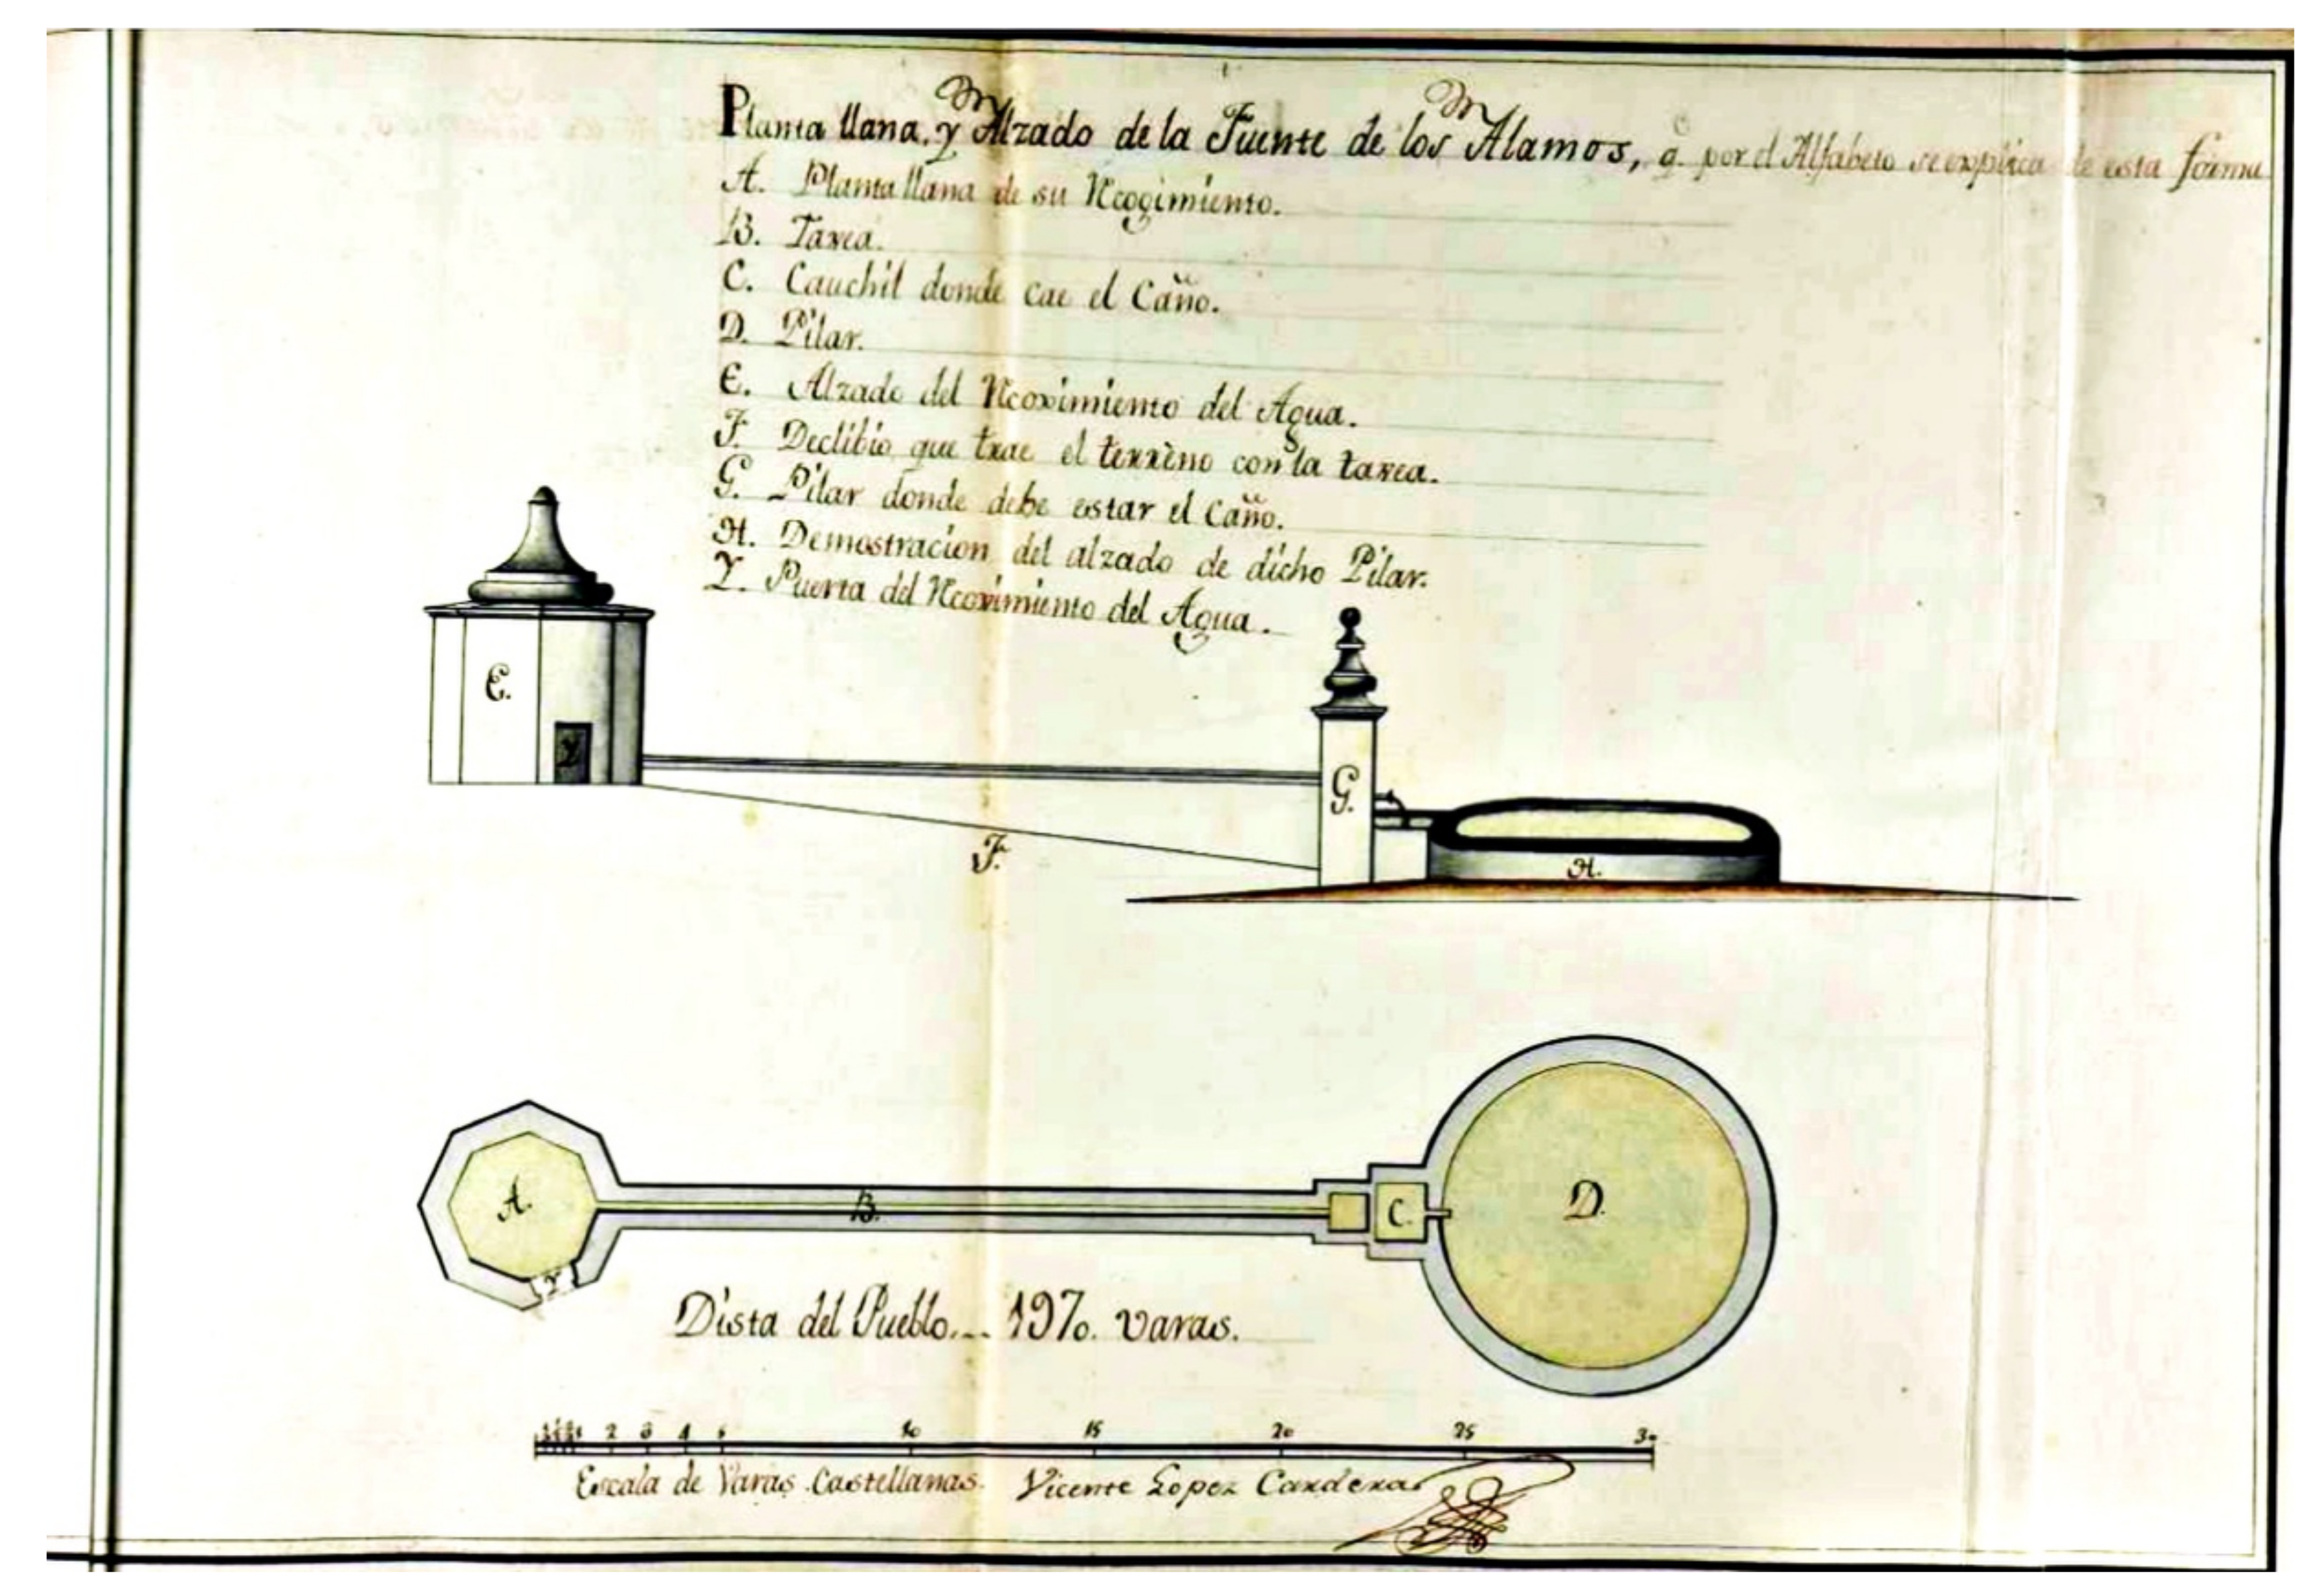 Planta llana, y Alzado de la Fuente de los Alamos, q. por el Alfabeto se explica de esta forma
A. Planta llana de su Recogimiento.
B. Tarxea.
C. Cauchil donde cae el Caño.
D. Pilar.
E. Alzado del Recoximiento del Agua.
F. Declibio que trae el terreno con la tarxea.
G. Pilar donde debe estar el Caño.
H. Demostracion del alzado de dicho Pilar.
Y. Puerta del Recoximiento del Agua.
E.
Y
G.
F.
H.
A.
B.
C.
D.
Y
Dista del Pueblo... 1970. varas.
1 2 3 4 5 10 15 20 25 30
Escala de Varas Castellanas. Vicente Lopez Cardera